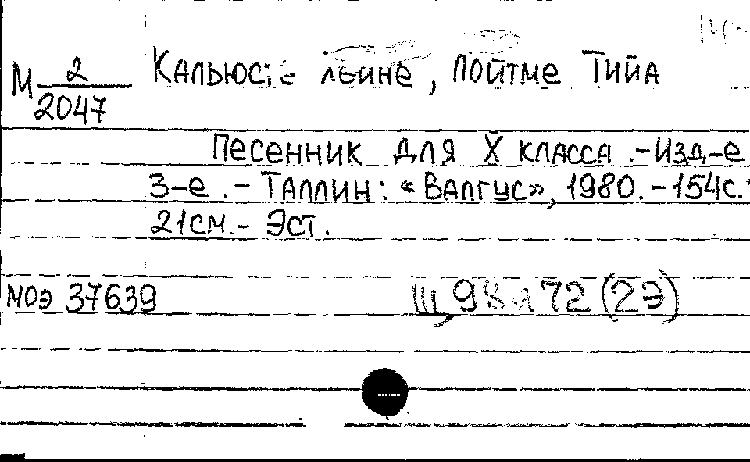 М 2/2047
Кальюс, Лойтме Тийа
Песенник для X класса. - Изд-е
3-е. - Таллин: «Валгус», 1980. - 154с.
21см. - Эст.
МОЭ 37639
Щ 72 (2Э)